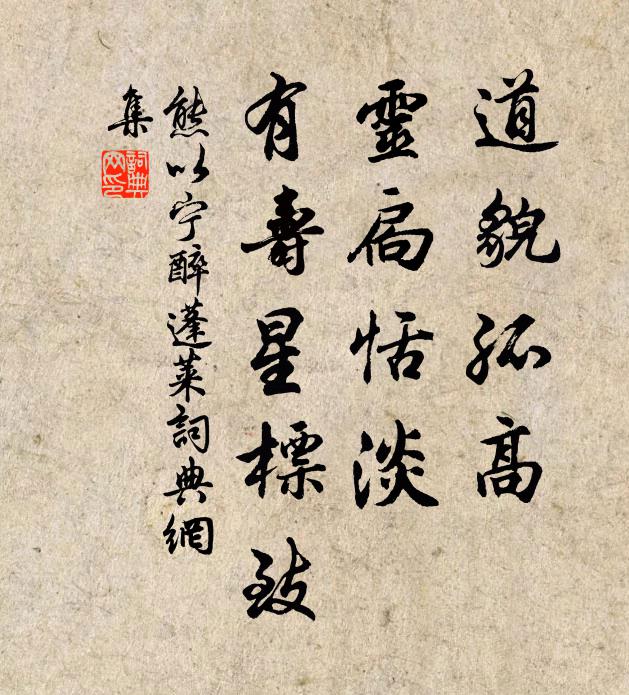 道貌孤高
靈扃恬淡
有壽星標致
熊以宁醉蓬萊詞典網
集
詞典
网印